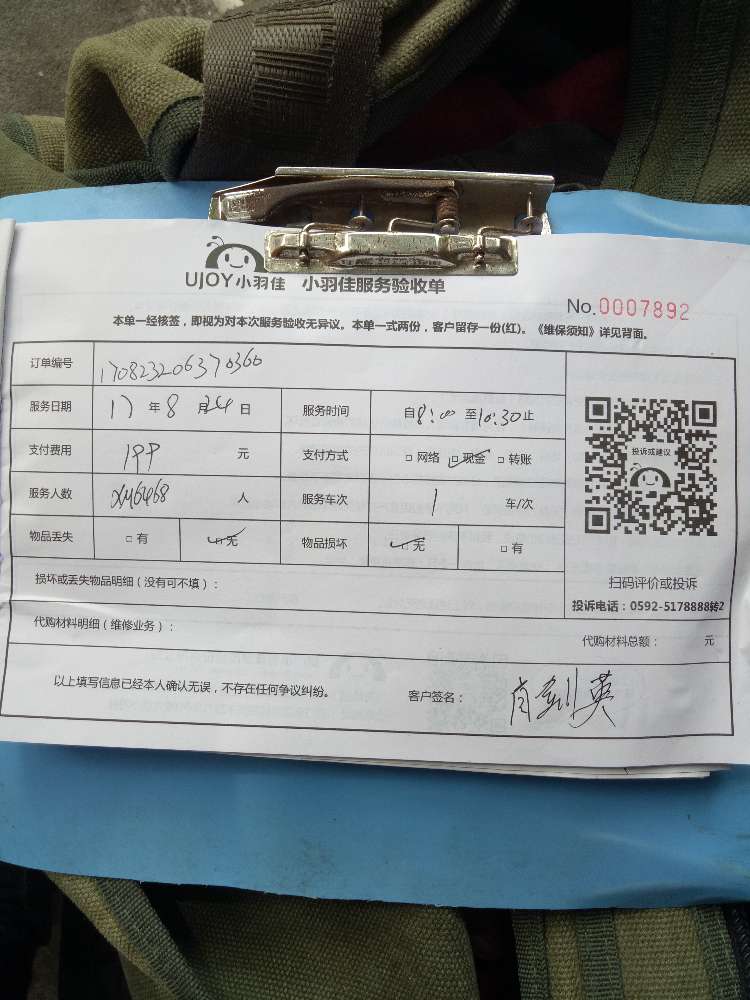 UJOY小羽佳 小羽佳服务验收单
No.0007892
本单一经核签，即视为对本次服务验收无异议。本单一式两份，客户留存一份(红)。《维保须知》详见背面。
订单编号 170823206370360
服务日期 17 年 8 月 24 日 服务时间 自8:00 至10:30止
支付费用 199 元 支付方式 □ 网络 □ 现金 □ 转账
服务人数 XM6468 人 服务车次 1 车/次
物品丢失 □ 有 □ 无 物品损坏 □ 无 □ 有
投诉或建议
扫码评价或投诉
投诉电话：0592-5178888转2
损坏或丢失物品明细（没有可不填）：
代购材料明细（维修业务）：
代购材料总额： 元
以上填写信息已经本人确认无误，不存在任何争议纠纷。 客户签名：